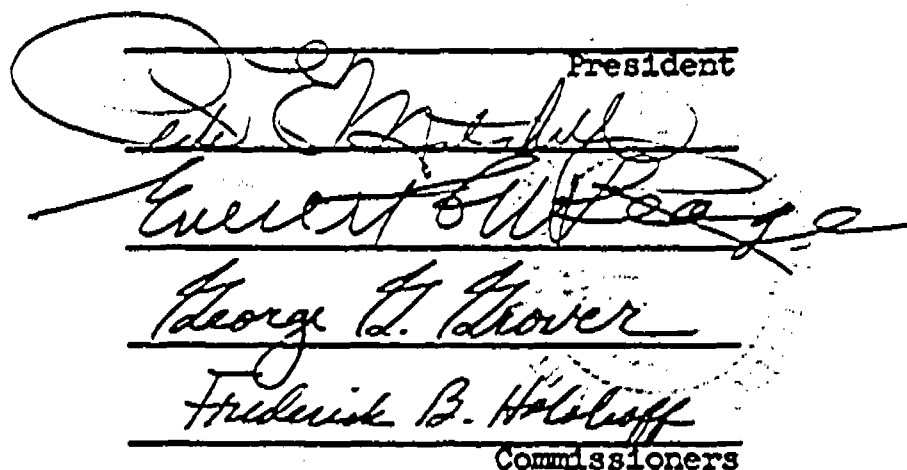 President
Peter E. Mitchell
Everett C. McKeage
George G. Grover
Frederick B. Holoboff
Commissioners